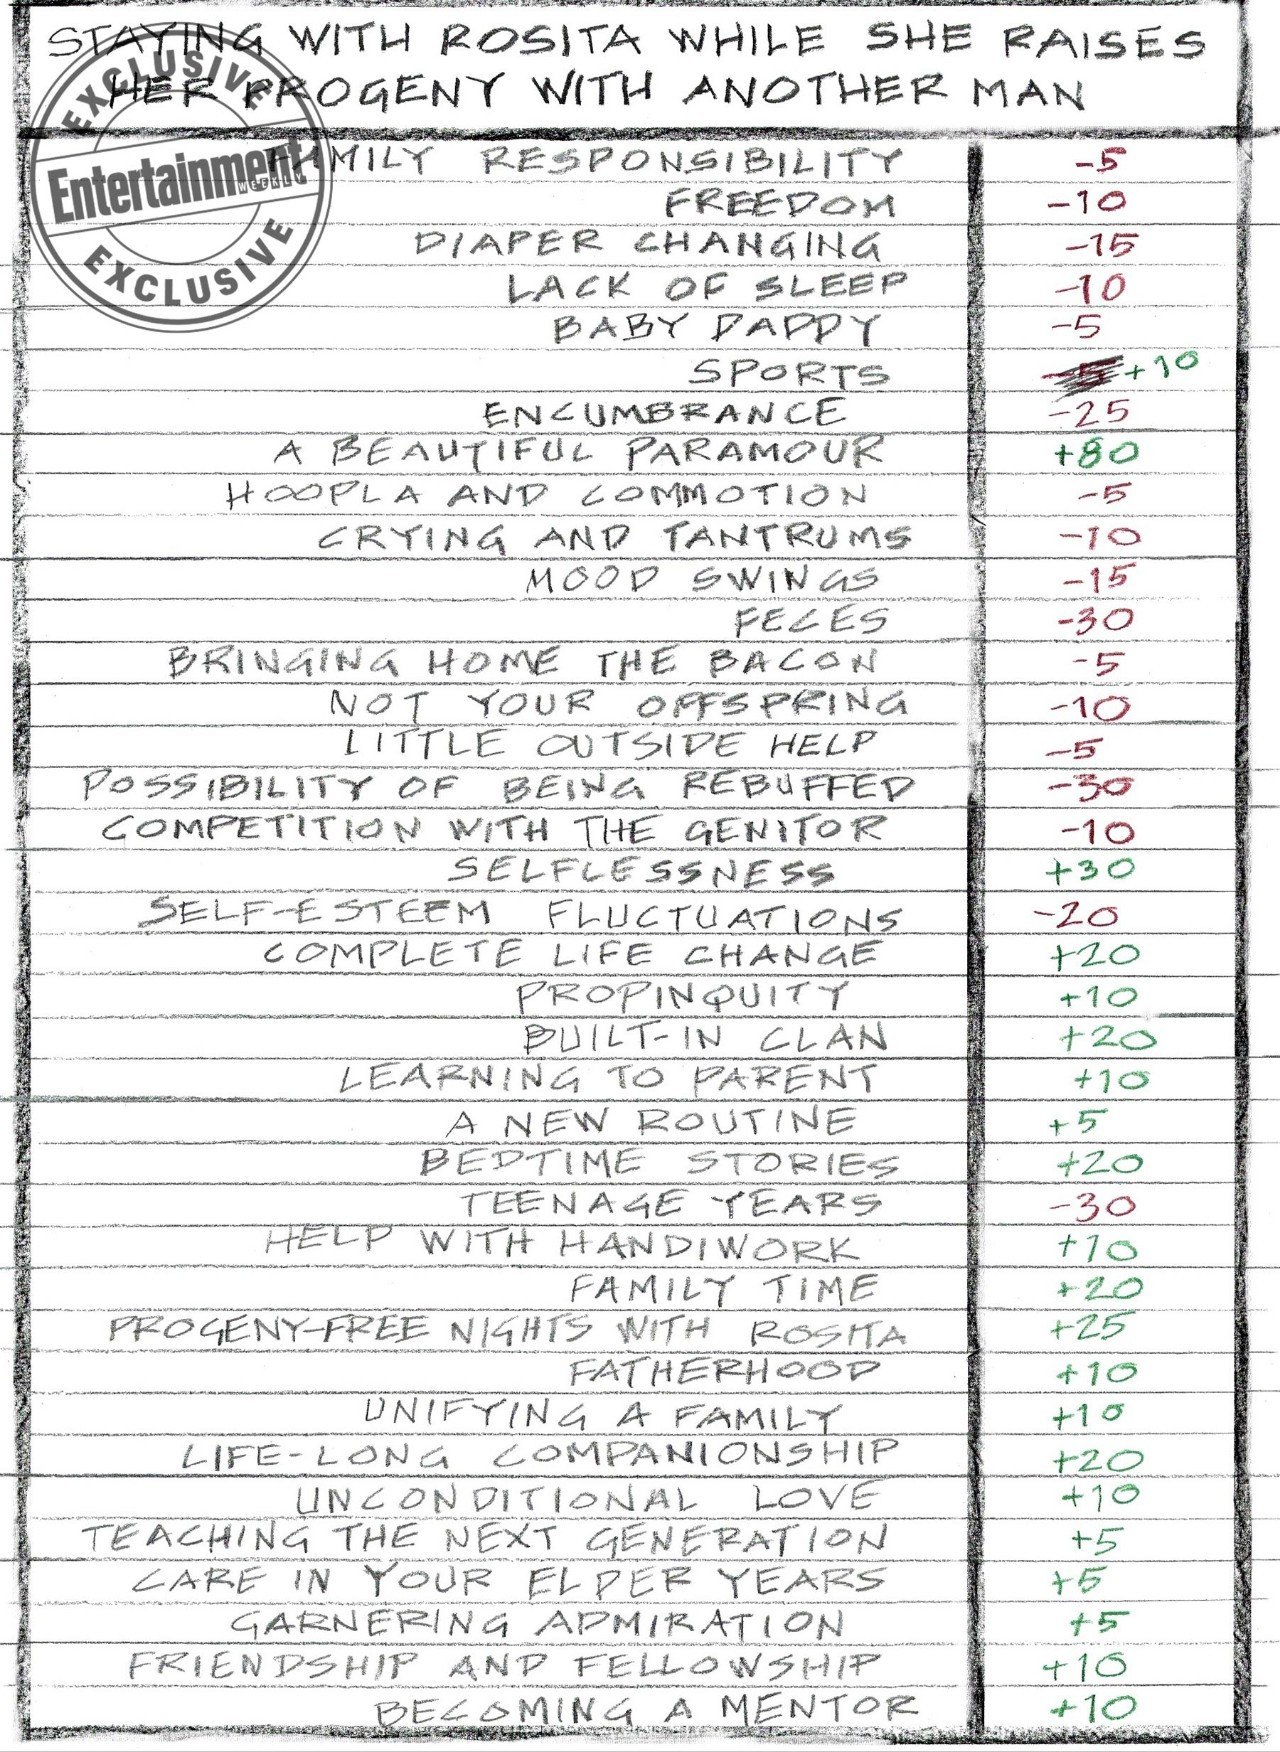 STAYING WITH ROSITA WHILE SHE RAISES
HER PROGENY WITH ANOTHER MAN
EXCLUSIVE
Entertainment
WEEKLY
EXCLUSIVE
FAMILY RESPONSIBILITY -5
FREEDOM -10
DIAPER CHANGING -15
LACK OF SLEEP -10
BABY DADDY -5
SPORTS -5 +10
ENCUMBRANCE -25
A BEAUTIFUL PARAMOUR +80
HOOPLA AND COMMOTION -5
CRYING AND TANTRUMS -10
MOOD SWINGS -15
FECES -30
BRINGING HOME THE BACON -5
NOT YOUR OFFSPRING -10
LITTLE OUTSIDE HELP -5
POSSIBILITY OF BEING REBUFFED -30
COMPETITION WITH THE GENITOR -10
SELFLESSNESS +30
SELF-ESTEEM FLUCTUATIONS -20
COMPLETE LIFE CHANGE +20
PROPINQUITY +10
BUILT-IN CLAN +20
LEARNING TO PARENT +10
A NEW ROUTINE +5
BEDTIME STORIES +20
TEENAGE YEARS -30
HELP WITH HANDIWORK +10
FAMILY TIME +20
PROGENY-FREE NIGHTS WITH ROSITA +25
FATHERHOOD +10
UNIFYING A FAMILY +10
LIFE-LONG COMPANIONSHIP +20
UNCONDITIONAL LOVE +10
TEACHING THE NEXT GENERATION +5
CARE IN YOUR ELDER YEARS +5
GARNERING ADMIRATION +5
FRIENDSHIP AND FELLOWSHIP +10
BECOMING A MENTOR +10